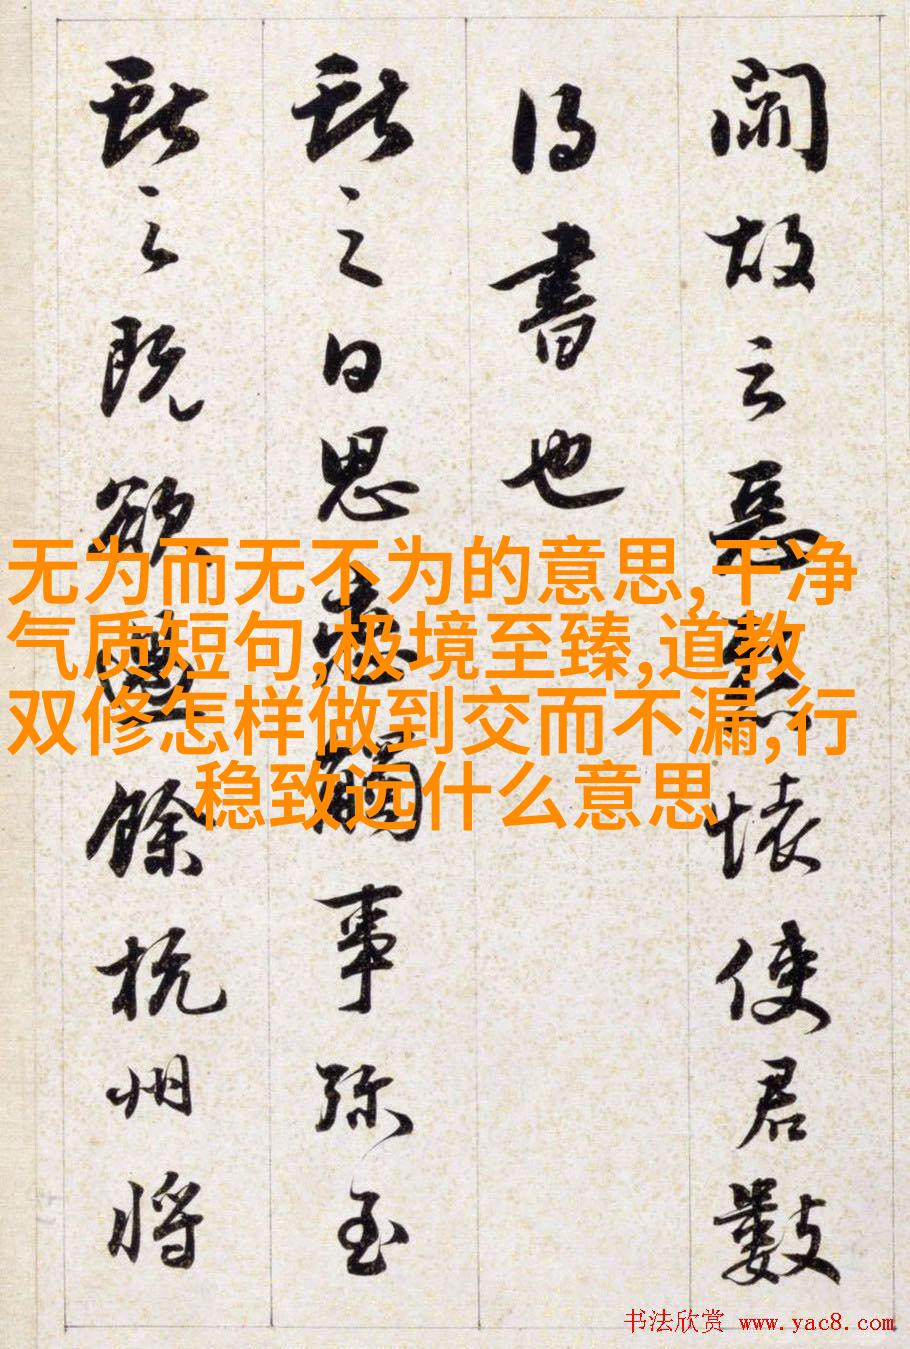 故云惡懐使君數
得書也
獻之白思戀觸事弥至
獻之既欲過餘杭州将
无为而无不为的意思,干净
气质短句,极境至臻,道教
双修怎样做到交而不漏,行
稳致远什么意思
书法欣赏 www.yac8.com